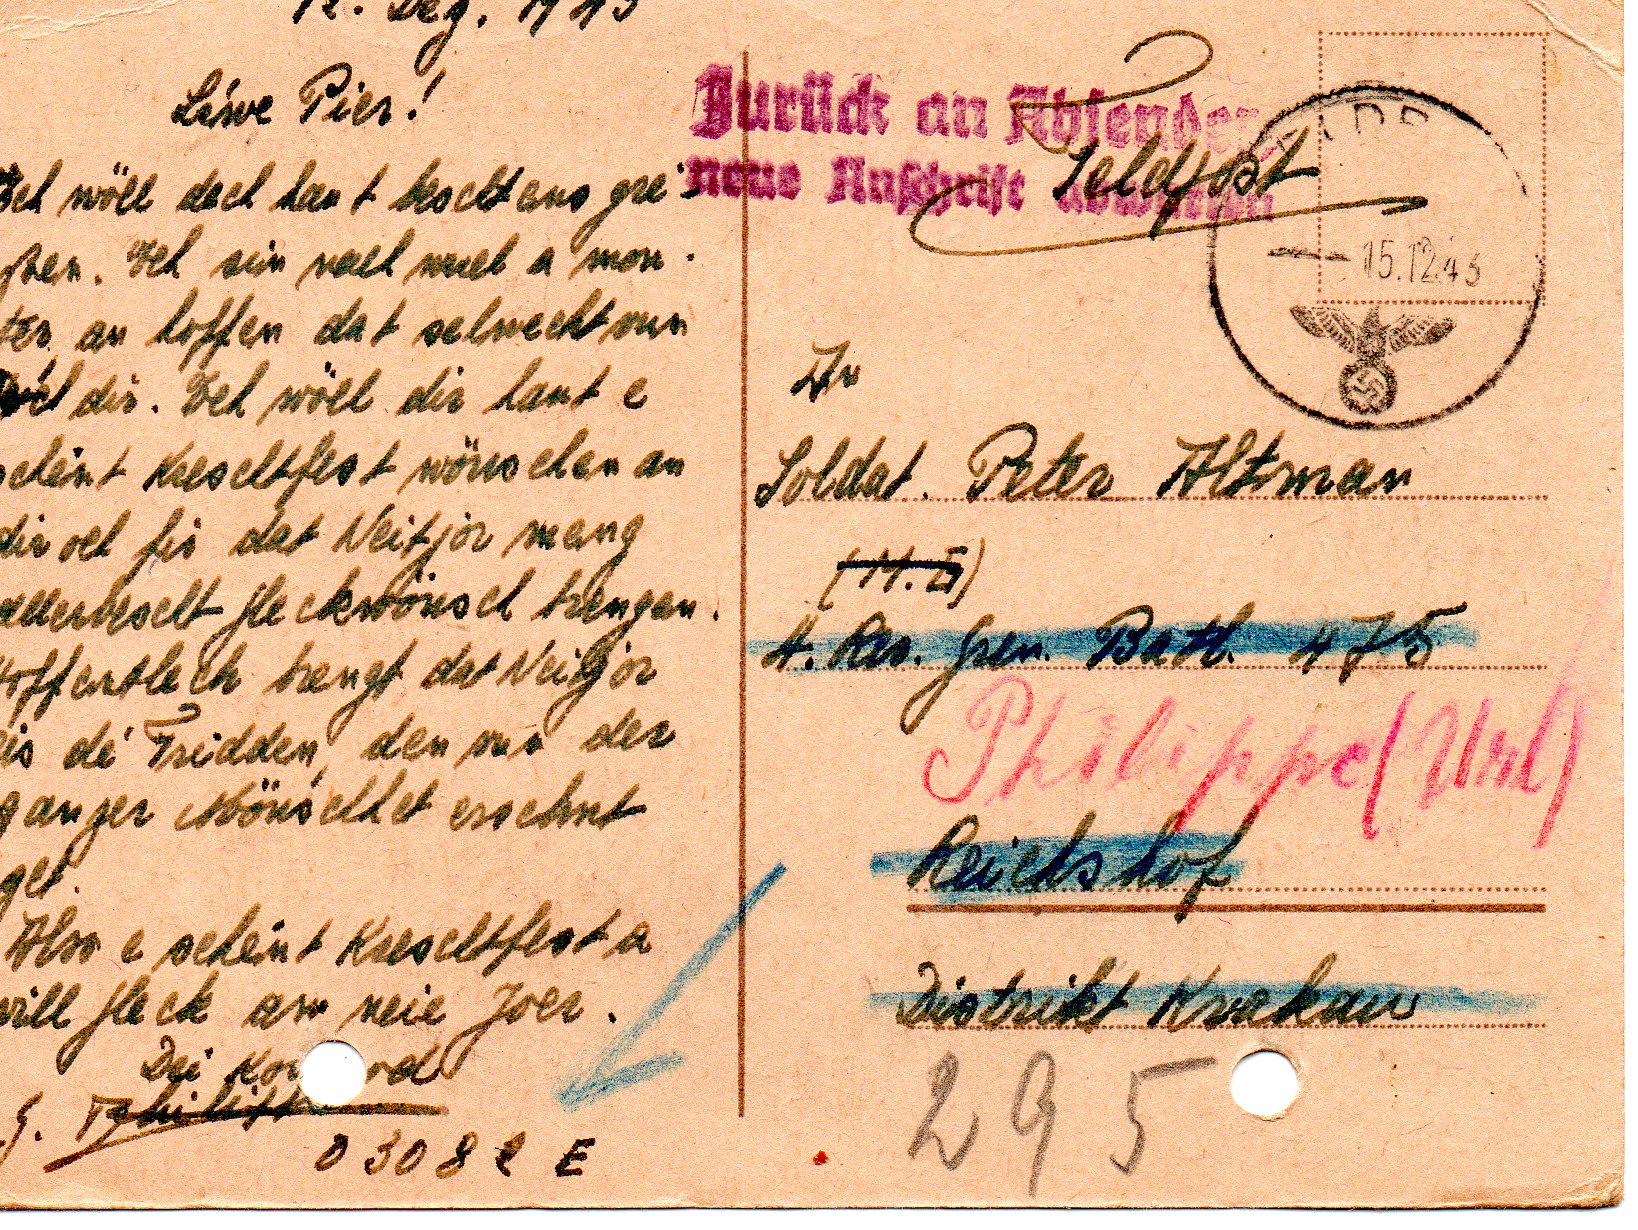 12. Dez. 1943
Léiwe Pier!
Ech wöll dech haut beschtens gréi-
ssen. Ech sin nach wuel a mon-
ter an hoffen dat selwecht vun
dir. Ech wöll dir haut e
scheint Kreschtfest wönschen an
dir och fir dat Neitjor meng
allerbescht Gleckwönsch brengen.
Hoffentlech brengt dat Neitjor
eis dé Fridden, den vun der
ganzer Mönschhet ersehnt
get.
Also e scheint Kreschtfest a
vill Gleck am neie Joer.
Dei
G. Philipp
03082 E
Zurück an Absender
neue Anschrift abwarten
Feldpost
15.12.43
An
Soldat. Peter Altman
4. Res. Gren. Batl. 475
Philippe (Url)
Reichshof
Distrikt Krakau
295